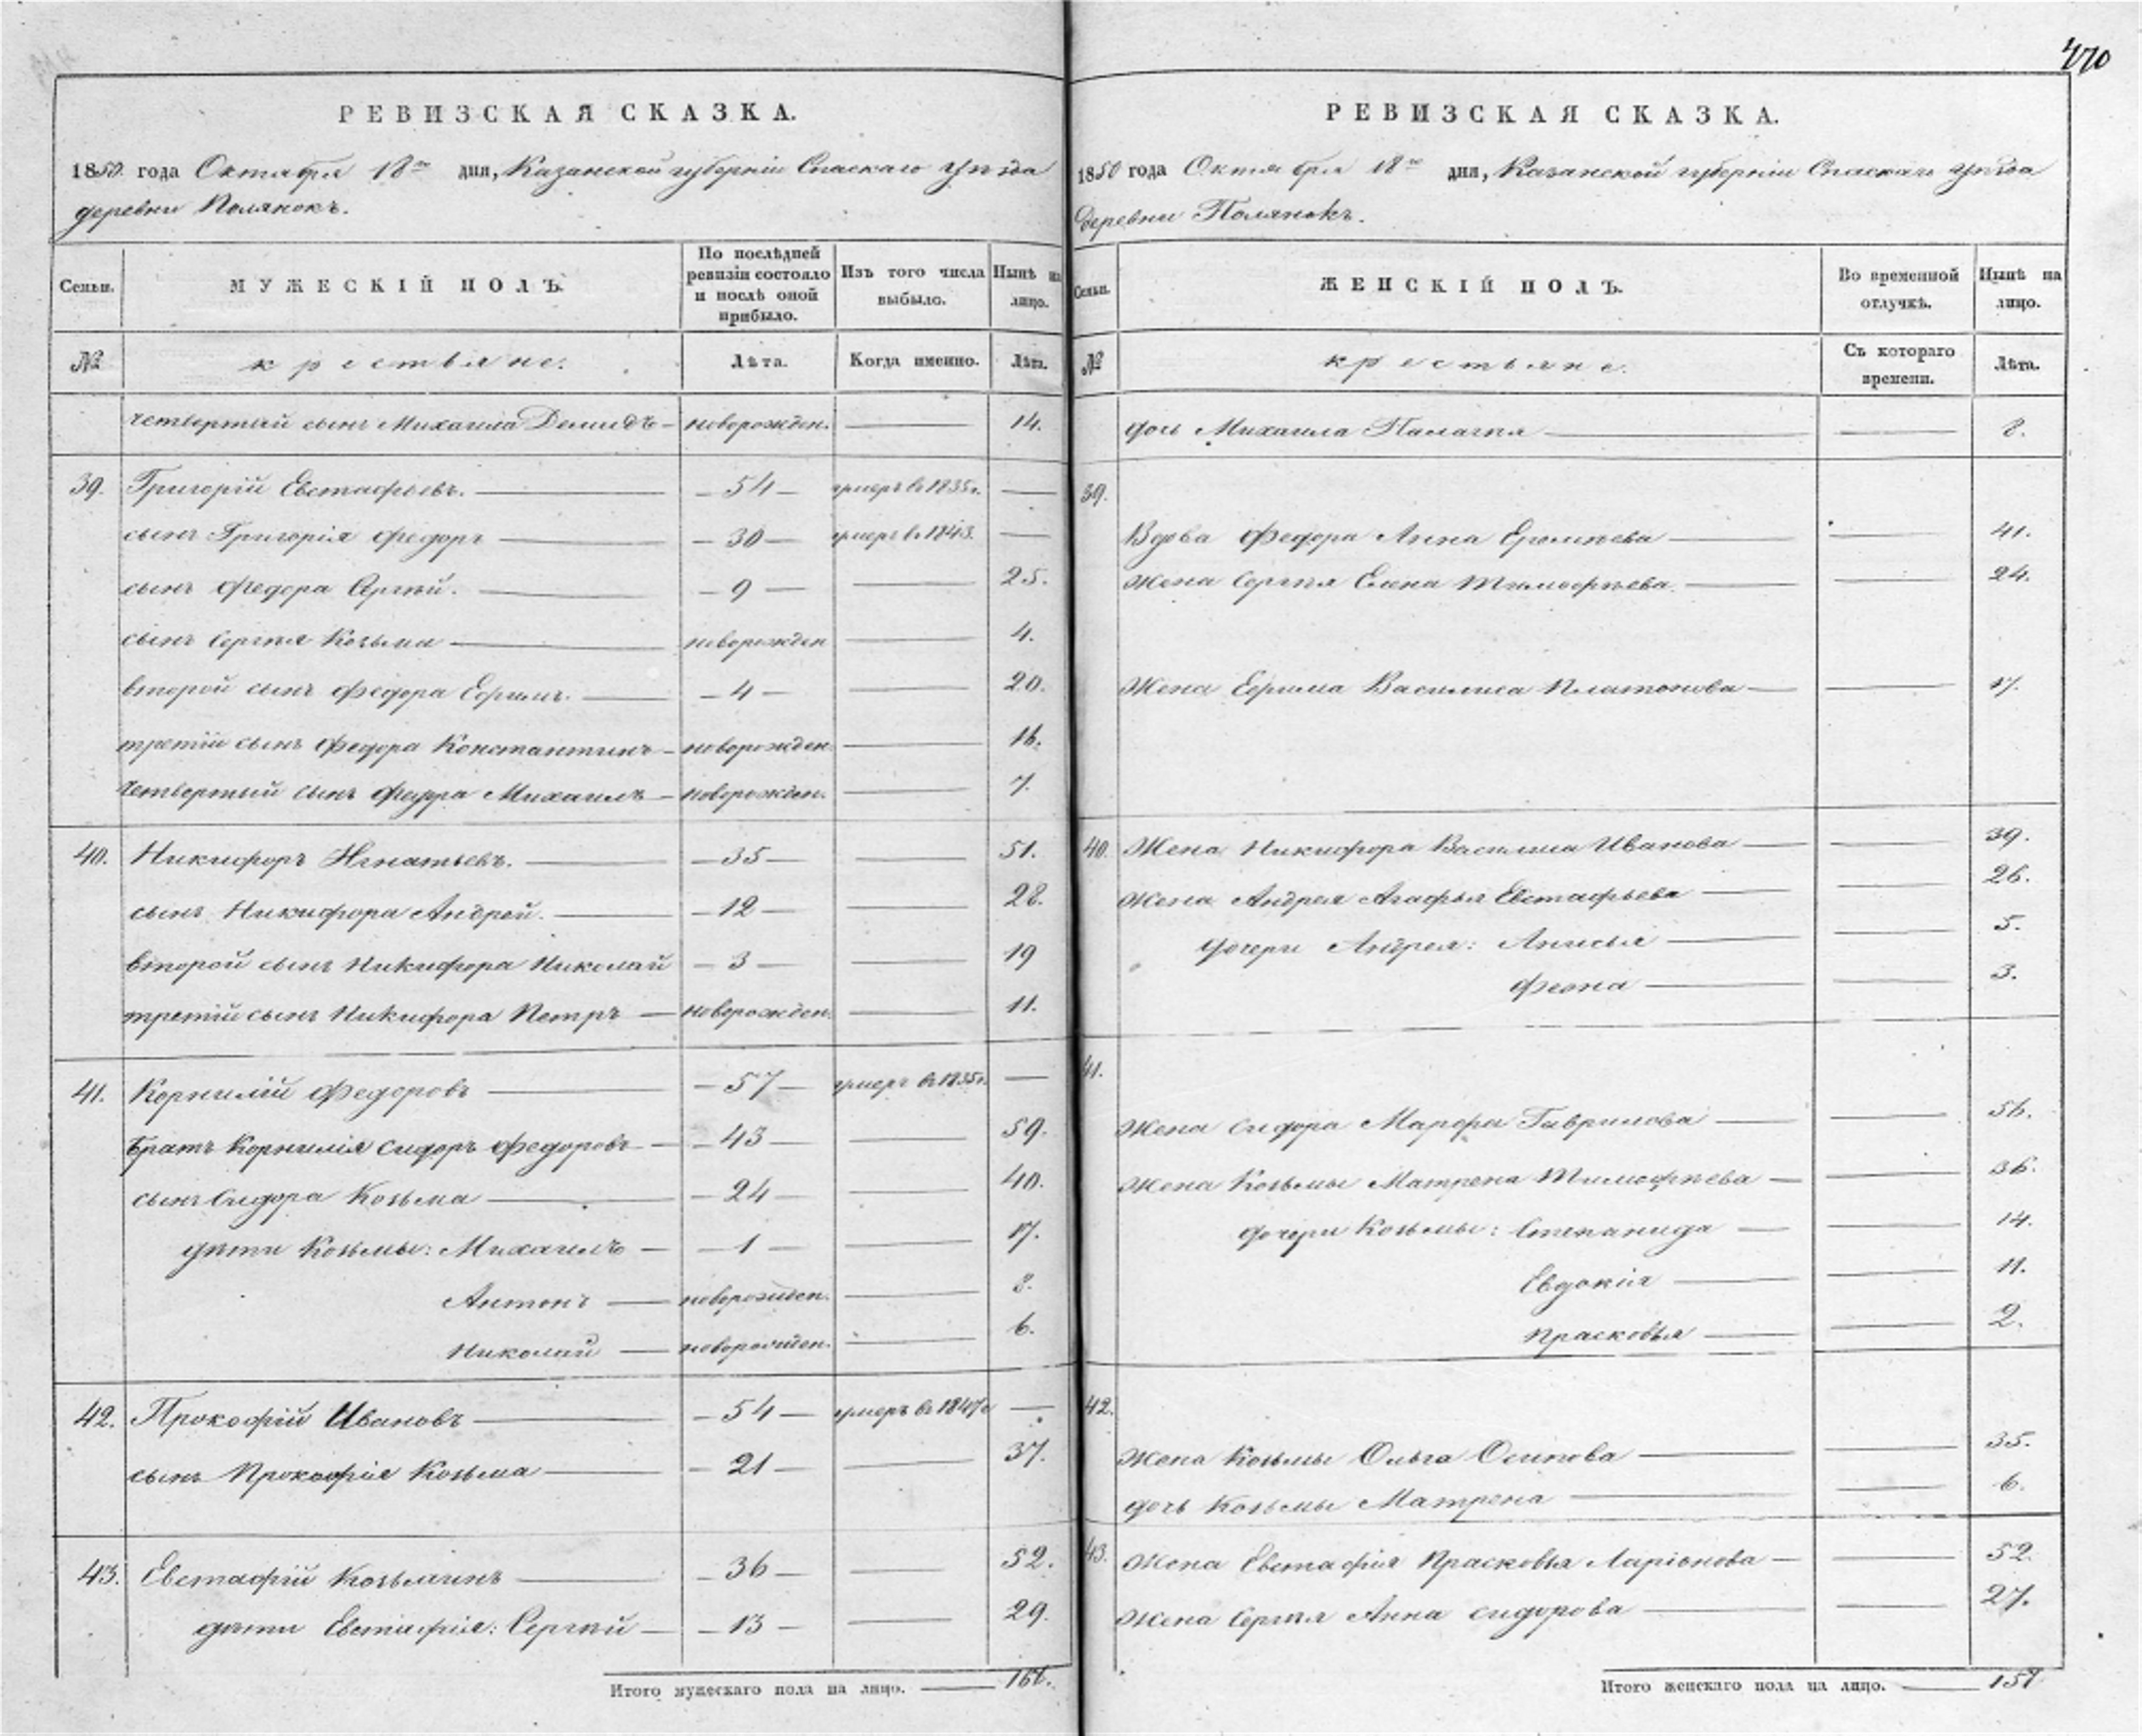 470
РЕВИЗСКАЯ СКАЗКА.
1850 года Октября 18го дня, Казанской губернiи Спаскаго уѣзда
деревни Полянокъ.
Семьи. МУЖЕСКІЙ ПОЛЪ. По послѣдней ревизіи состояло и послѣ оной прибыло. Изъ того числа выбыло. Нынѣ на лицо.
№ крестьяне. Лѣта. Когда именно. Лѣта.
четвертый сынъ Михаила Демидъ — новорожден. — 14.
39. Григорiй Евстафьевъ. — 54 — умеръ въ 1835г. —
сынъ Григорiя Федоръ — 30 — умеръ въ 1843. —
сынъ Федора Сергѣй. — 9 — 25.
сынъ Сергѣя Козьма — новорожден — 4.
второй сынъ Федора Ефимъ. — 4 — 20.
третiй сынъ Федора Константинъ — новорожден. — 16.
четвертый сынъ Федора Михаилъ — новорожден. — 7.
40. Никифоръ Игнатьевъ. — 35 — 51.
сынъ Никифора Андрей. — 12 — 28.
второй сынъ Никифора Николай — 3 — 19
третiй сынъ Никифора Петръ — новорожден. — 11.
41. Корнилiй Федоровъ — 57 — умеръ въ 1835г. —
братъ Корнилiя Сидоръ Федоровъ — 43 — 59.
сынъ Сидора Козьма — 24 — 40.
дѣти Козьмы: Михаилъ — 1 — 17.
Антонъ — новорожден. — 8.
Николай — новорожден. — 6.
42. Прокофiй Ивановъ — 54 — умеръ въ 1847г —
сынъ Прокофiя Козьма — 21 — 37.
43. Евстафiй Козьминъ — 36 — 52.
дѣти Евстафiя: Сергѣй — 13 — 29.
Итого мужескаго пола на лицо. —
РЕВИЗСКАЯ СКАЗКА.
1850 года Октября 18го дня, Казанской губернiи Спаскаго уѣзда
деревни Полянокъ.
Семьи. ЖЕНСКІЙ ПОЛЪ. Во временной отлучкѣ. Нынѣ на лицо.
№ крестьяне. Съ котораго времени. Лѣта.
дочь Михаила Палагея — 8.
39.
Вдова Федора Анна — 41.
Жена Сергѣя Елена Тимофѣева. — 24.
Жена Ефима Василиса Платонова — 17.
40. Жена Никифора Василиса Иванова — 39.
Жена Андрея Агафья Евстафьева — 26.
дочери Андрея: Анисья — 5.
Феона — 3.
41.
Жена Сидора Марфа Гаврилова — 56.
Жена Козьмы Матрена Тимофѣева — 36.
дочери Козьмы: Степанида — 14.
Евдокiя — 11.
Прасковья — 2.
42.
Жена Козьмы Ольга Осипова — 35.
дочь Козьмы Матрена — 6.
43. Жена Евстафiя Прасковья Ларiонова — 52.
Жена Сергѣя Анна Сидорова — 27.
Итого женскаго пола на лицо. —